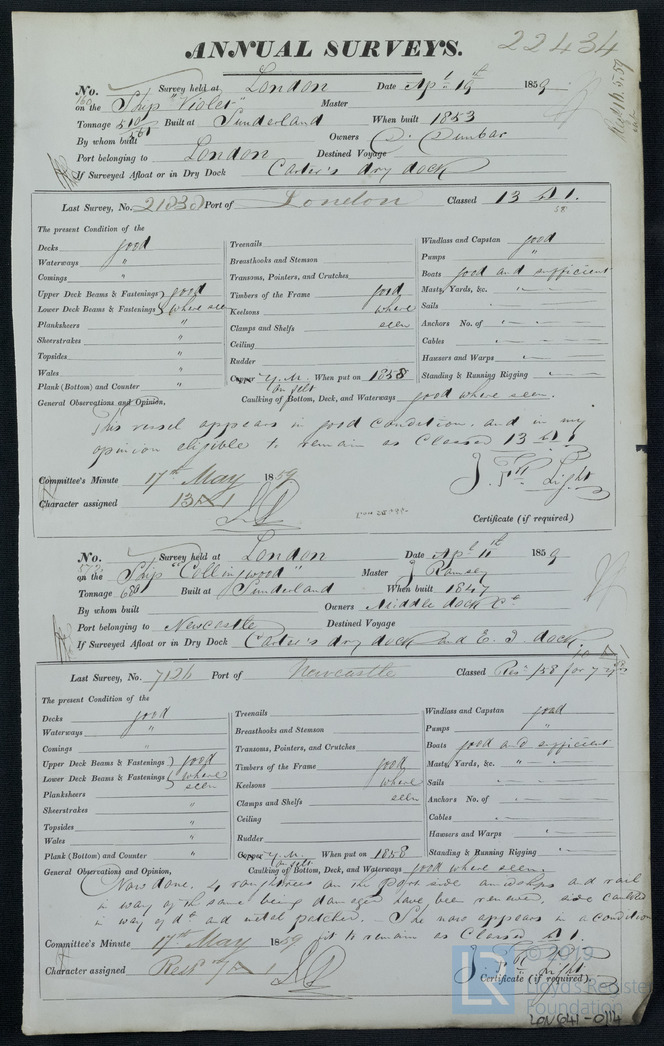 22434
ANNUAL SURVEYS.
Recd 16.5.59
No. 160 Survey held at London Date Apl 19th 1859
on the Ship "Violet" Master
Tonnage 510/561 Built at Sunderland When built 1853
By whom built Owners D. Dunbar
Port belonging to London Destined Voyage
If Surveyed Afloat or in Dry Dock Carter's dry dock
Last Survey, No. Port of London Classed 13 A 1.
58
The present Condition of the
Decks good
Waterways "
Comings "
Upper Deck Beams & Fastenings } good
Lower Deck Beams & Fastenings } where seen
Planksheers "
Sheerstrakes "
Topsides "
Wales "
Plank (Bottom) and Counter "
Treenails
Breasthooks and Stemson
Transoms, Pointers, and Crutches
Timbers of the Frame good
Keelsons where
Clamps and Shelfs seen
Ceiling
Rudder
Copper Y.M. on felt When put on 1858
Windlass and Capstan good
Pumps "
Boats good and sufficient
Masts, Yards, &c. "
Sails
Anchors No. of
Cables
Hawsers and Warps
Standing & Running Rigging
General Observations and Opinion, Caulking of Bottom, Deck, and Waterways good where seen.
This vessel appears in good condition, and in my
opinion eligible to remain as Classed 13 A 1
Committee's Minute 17th May 1859
Character assigned 13 A 1
Light
Certificate (if required)
No. 572 Survey held at London Date Apl 11th 1859
on the Ship "Collingwood" Master J Ramsey
Tonnage 680 Built at Sunderland When built 1847
By whom built Owners Middle dock Co
Port belonging to Newcastle Destined Voyage
If Surveyed Afloat or in Dry Dock Carter's dry dock and E. I. dock
Last Survey, No. 7126 Port of Newcastle Classed Resd /58 for 7 yrs
The present Condition of the
Decks good
Waterways "
Comings "
Upper Deck Beams & Fastenings } good
Lower Deck Beams & Fastenings } where
Planksheers seen
Sheerstrakes "
Topsides "
Wales "
Plank (Bottom) and Counter "
Treenails
Breasthooks and Stemson
Transoms, Pointers, and Crutches
Timbers of the Frame good
Keelsons where
Clamps and Shelfs seen
Ceiling
Rudder
Copper Y.M. on felt When put on 1858
Windlass and Capstan good
Pumps "
Boats good and sufficient
Masts, Yards, &c. "
Sails
Anchors No. of
Cables
Hawsers and Warps
Standing & Running Rigging
General Observations and Opinion, Caulking of Bottom, Deck, and Waterways good where seen
Now done, 4 roughtrees on the port side amidships and rail
in way of the same being damaged have been renewed, side caulked
in way of do and metal patched. She now appears in a condition
fit to remain as Classed A 1.
Committee's Minute 17th May 1859
Character assigned Resd 7 A 1
Light
Certificate (if required)
LR © 2019
Lloyd's Register
Foundation
LON641-0114